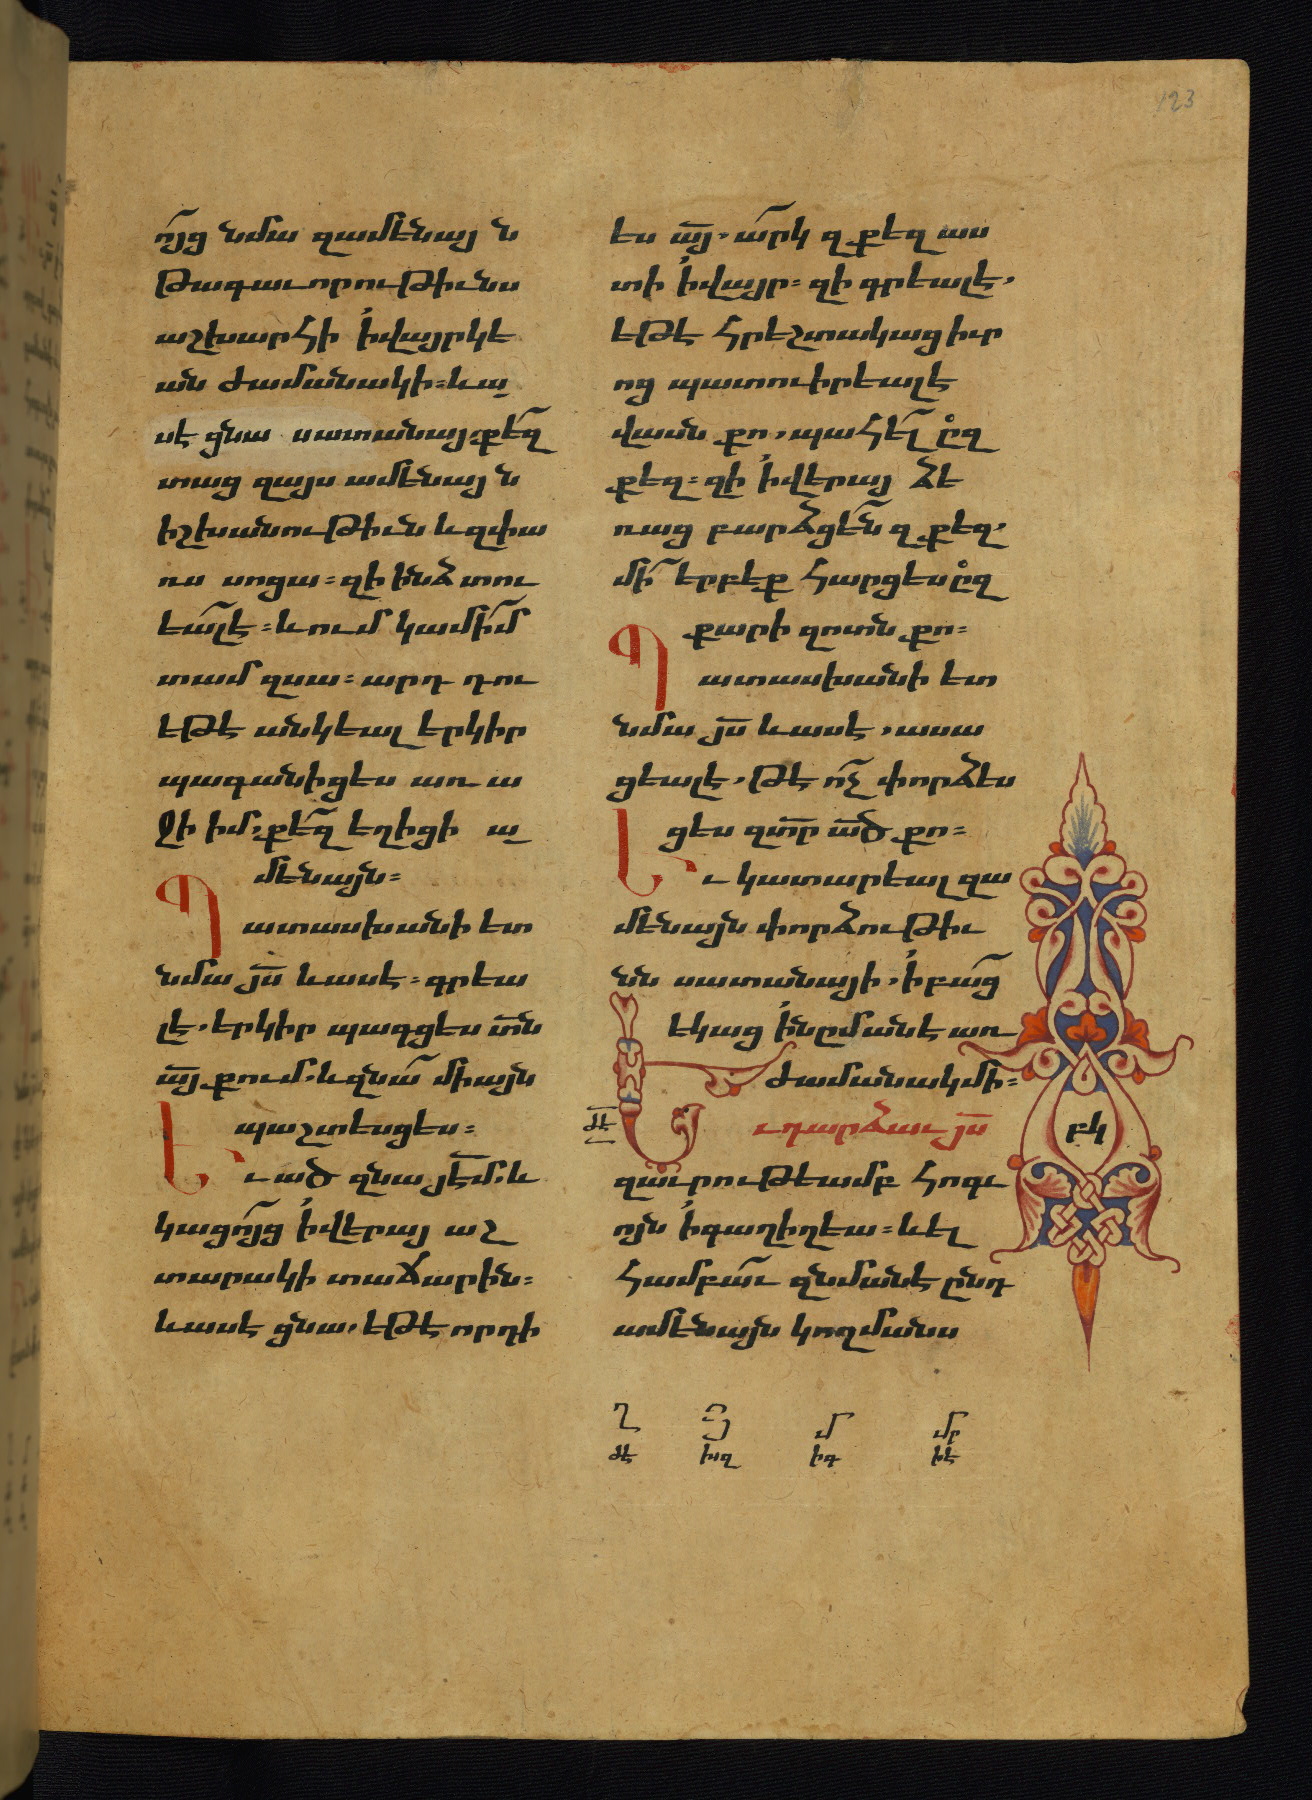 123
ո՜յց նմա զամենայն
թագաւորութիւնս
աշխարհի ՛ի վայրկե
ան ժամանակի։ և ա
սէ ցնա սատանայ. քե՜զ
տաց զայս ամենայն
իշխանութիւն և զփա
ռս սոցա։ զի ինձ տու
եա՜լ է։ և ում կամի՜մ
տամ զսա։ արդ դու
եթէ անկեալ երկիր
պագանիցես առա
ջի իմ, քե՜զ եղիցի ա
մենայն։
Պատասխանի ետ
նմա յս և ասէ։ գրեա
լ է. երկիր պագցես տն
այ քում. և զնա՜ միայն
պաշտեսցես։
Եւ ած զնա յեմ. և
կացո՜յց ՛ի վերայ աշ
տարակի տաճարին։
և ասէ ցնա. եթէ որդի
ես այ. ա՜րկ զքեզ աս
տի ՛ի վայր։ զի գրեալ է.
եթէ հրեշտակաց իւր
ոց պատուիրեալ է
վասն քո, պահե՜լ ըզ
քեզ։ զի ՛ի վերայ ձե
ռաց բարձցե՜ն զքեզ.
մի՜ երբեք հարցես ըզ
քարի զոտն քո։
Պատասխանի ետ
նմա յս և ասէ, ասա
ցեալ է. թէ ո՜չ փորձես
ցես զտր ած քո։
Եւ կատարեալ զա
մենայն փորձութիւ
նն սատանայի. ՛ի բա՜ց
եկաց ՛ի նըմանէ առ
ժամանակ մի։
ժէ
Եւ դարձաւ յս
բկ
զաւրութեամբ հոգւ
ոյն ՛ի գաղիղեա։ և ել
համբա՜ւ զնմանէ ընդ
ամենայն կողմանս
ղ մ մր
ժէ խզ իգ իէ